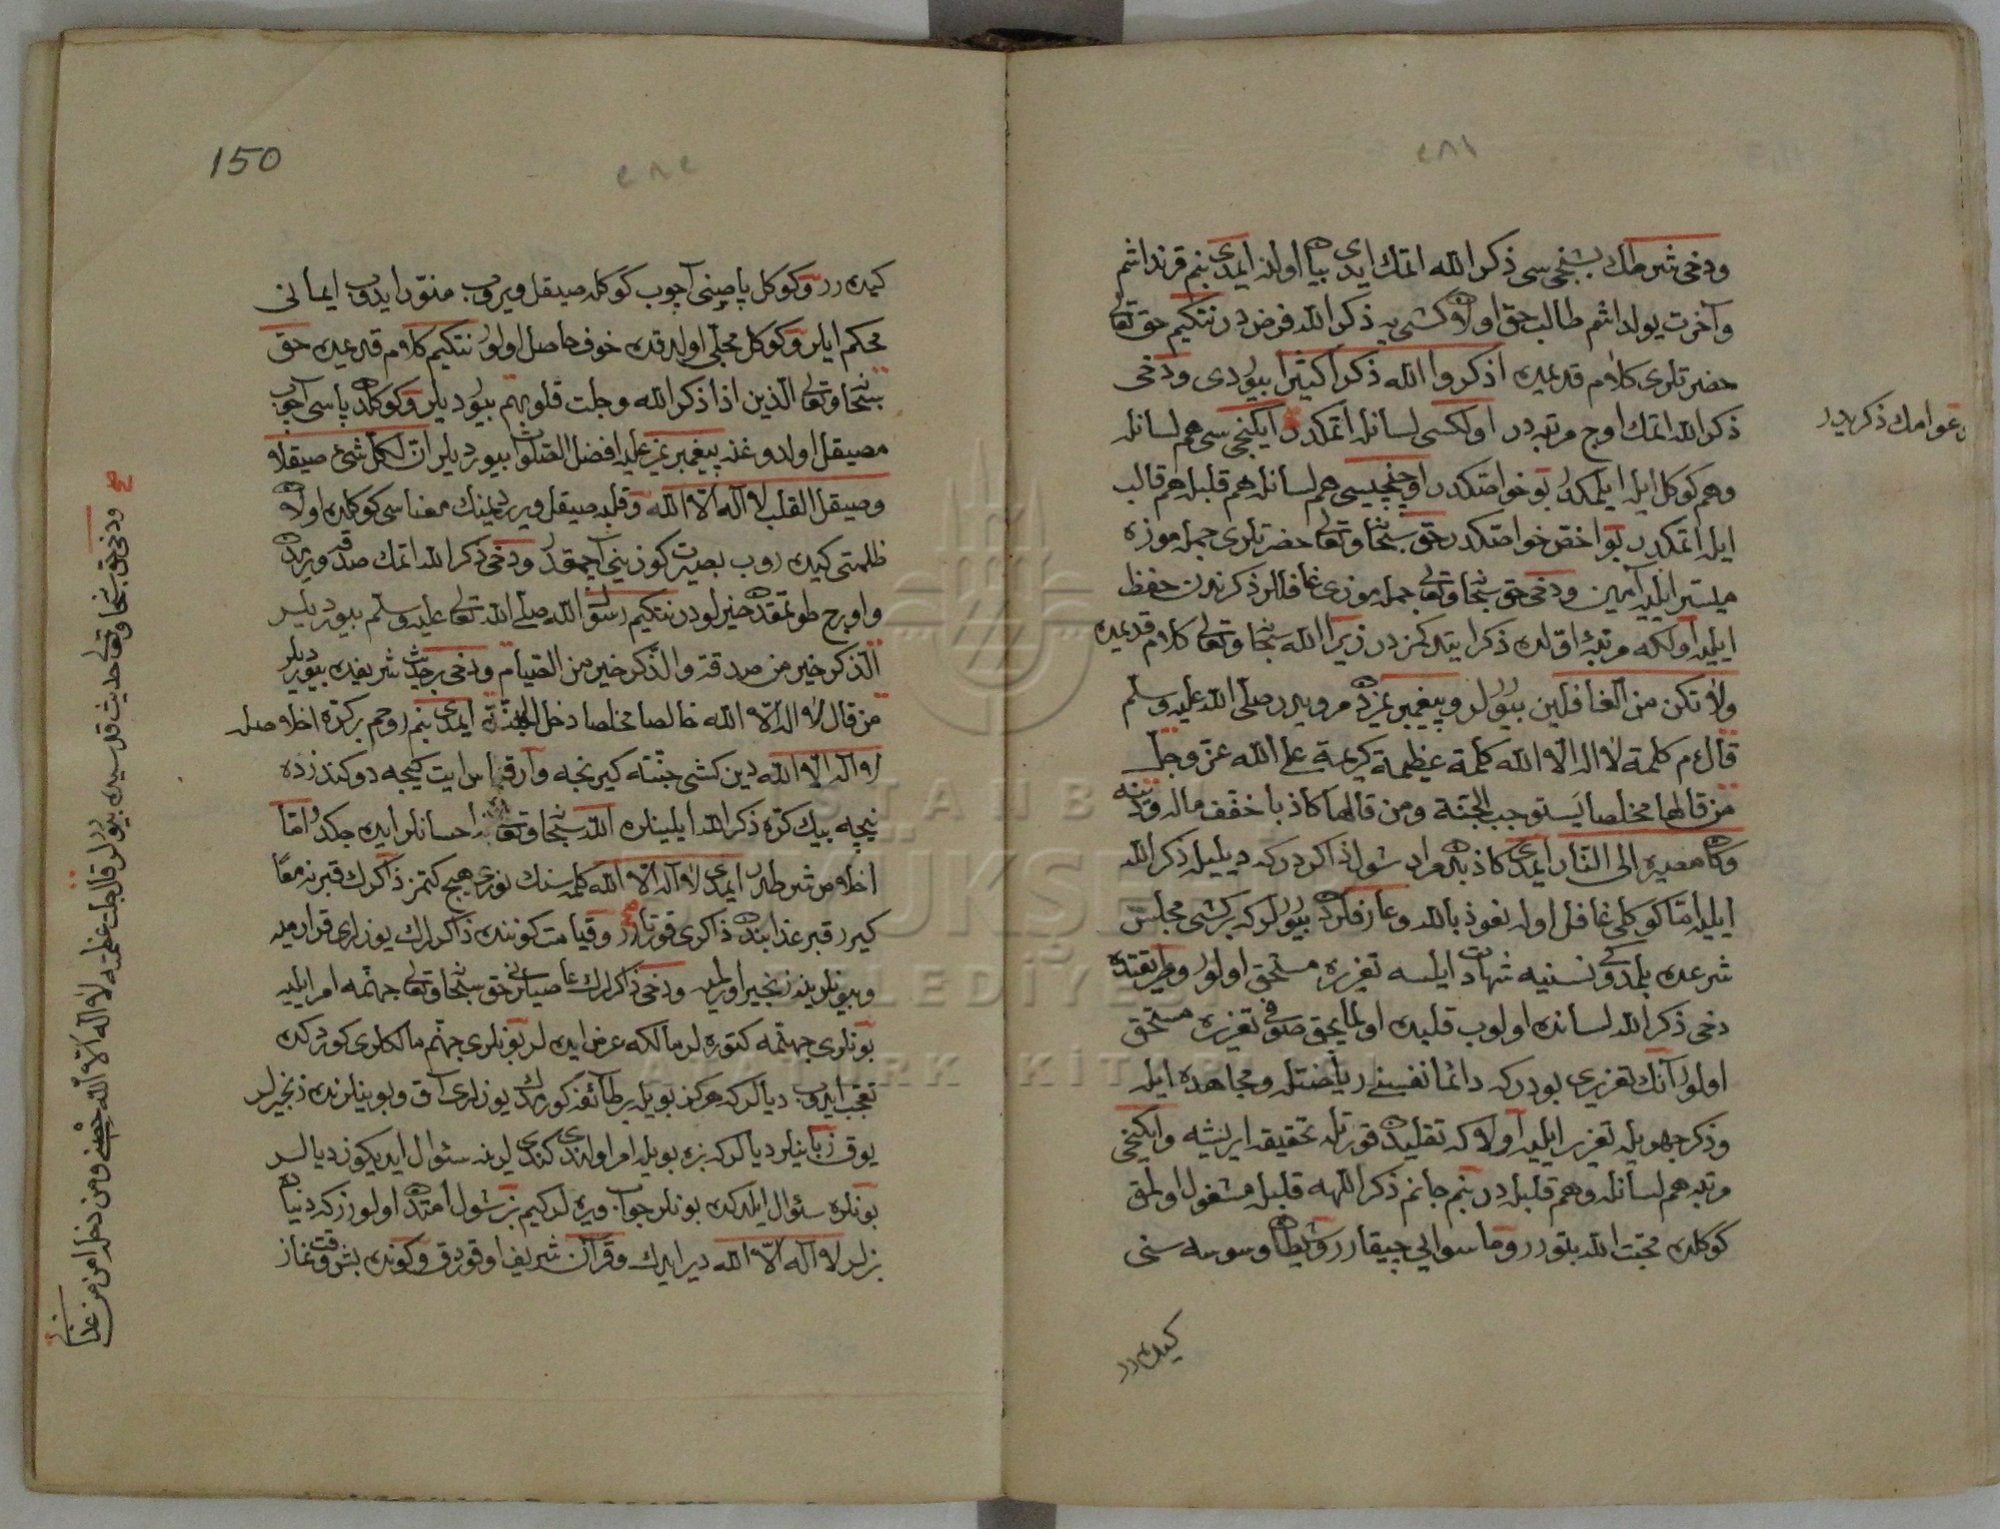 ٢٨١
ودخى شرطك بشنجيسى ذكر الله اتمك ايدى بيان اولنه ايمدى بنم قرنداشم
وآخرت يولداشم طالب حق اولان كشى يه ذكر الله فرض در نتكيم حق تعالى
حضرتلرى كلام قديمنده اذكروا الله ذكرا كثيرا بيوردى ودخى
ذكر الله اتمك اوج مرتبه در اولكسى لسانله اتمكدر ايكنجى سى هم لسانله
وهم كوكل ايله ايلمكدر بو خواصكدر اوچنجيسى هم لسانله هم قلبله هم قالب
ايله اتمكدر بو اخص خواصكدر حق سبحانه وتعالى حضرتلرى جمله موزه
ميسر ايليه آمين ودخى حق سبحانه وتعالى جمله موزى غافللر ذكرندن حفظ
ايليه اولكه مرتبۀ اولده ذكر ايتدكمز در زيرا الله سبحانه وتعالى كلام قديمنده
ولا تكن من الغافلين بيورلر وپيغمبرمزدن مرويدر صلى الله عليه وسلم
قال م كلمة لا اله الا الله كلمة عظيمة كريمة على الله عز وجل
من قالها مخلصا يستوجب الجنة ومن قالها كاذبا خفف ماله ودينه
وكان مصيره الى النار ايمدى كاذبدن مراد شول ذاكردركه ديليله ذكر الله
ايليه اما كوكلى غافل اوله نعوذ بالله وعارفلردن بيورلركه بر كشى مجلس
شرعده بلمدوكى نسنيه شهادت ايلسه تعزيره مستحق اولور وطريقتده
دخى ذكر الله لسانده اولوب قلبده اولمايجق صوفى تعزيره مستحق
اولور آنك تعزيرى بودركه دائما نفسنى رياضتله ومجاهده ايله
وذكر جهريله تعزير ايليه اولا كه تقليددن قورتله تحقيقه ايريشه وايكنجى
مرتبه هم لسانله وهم قلبله در بنم جانم ذكر اللهه قلبله مشغول اولمق
كوكلده محبت الله بتورر وما سوايى چيقارر وشيطان وسوسه سنى
كيده رر
عوامك ذكريدر
150
٢٨٢
كيده رر وكوكل پاصنى آچوب كوكله صيقل ويروب منور ايدوب ايمانى
محكم ايلر وكوكل مجلى اولدقده خوف حاصل اولور نتكيم كلام قديمنده حق
سبحانه وتعالى الذين اذا ذكر الله وجلت قلوبهم بيورديلر وكوكلدن پاسى آچوب
مصيقل اولدوغنه پيغمبرمز عليه افضل الصلوات بيورديلر ان لكل شئ صيقلا
وصيقل القلب لا اله الا الله وقلبه صيقل ويرديمنك معناسى كوكلده اولان
ظلمتى كيده روب بصيرت كوزينى آچمقدر ودخى ذكر الله اتمك صدقه ويرمكدن
واوروج طوتمقدن خيرلودر نتكيم رسول الله صلى الله تعالى عليه وسلم بيورديلر
الذكر خير من صدقة والذكر خير من الصيام ودخى بر حديث شريفده بيورديلر
من قال لا اله الا الله خالصا مخلصا دخل الجنة ايمدى بنم روحم بر كره اخلاصله
لا اله الا الله دين كشى جنته كيرنجه وارقياس ايت كيجه ده وكندزده
نيچه بيك كره ذكر الله ايلينلره الله سبحانه وتعالى احسانلر ايده جكدر اما
اخلاص شرطدر ايمدى لا اله الا الله كلمه سنك نورى هيچ كتمز ذاكرك قبرنه معا
كيرر قبر عذابندن ذاكرى قورتارر وقيامت كوننده ذاكرلرك يوزلرى قرارميه
وبيونلرينه زنجير اورلميه ودخى ذاكرلرك عاصيلرينى حق سبحانه وتعالى جهنمه امر ايليه
بونلرى جهنمه كتوره لر مالكه عرض ايده لر بونلرى جهنم مالكلرى كوردكده
تعجب ايدوب ديالركه هركز بويله بر طائفه كورمدك يوزلرى آق وبوينلرنده زنجيرلر
يوق زبانيلر ديالركه بزه بويله امر اولندى كندى لرنه سئوال ايديكوز ديالر
بونلره سئوال ايلدكده بونلر جواب ويره لركيم بز شول امتدن اولورزكه دنياده
بزلر لا اله الا الله دير ايدك وقرآن شريف اوقوردق وكونده بش وقت نماز
ودخى حق سبحانه وتعالى حديث قدسيده بيورلر قال جلت عظمته لا اله الا الله حصنى ومن دخله امن من عذابى